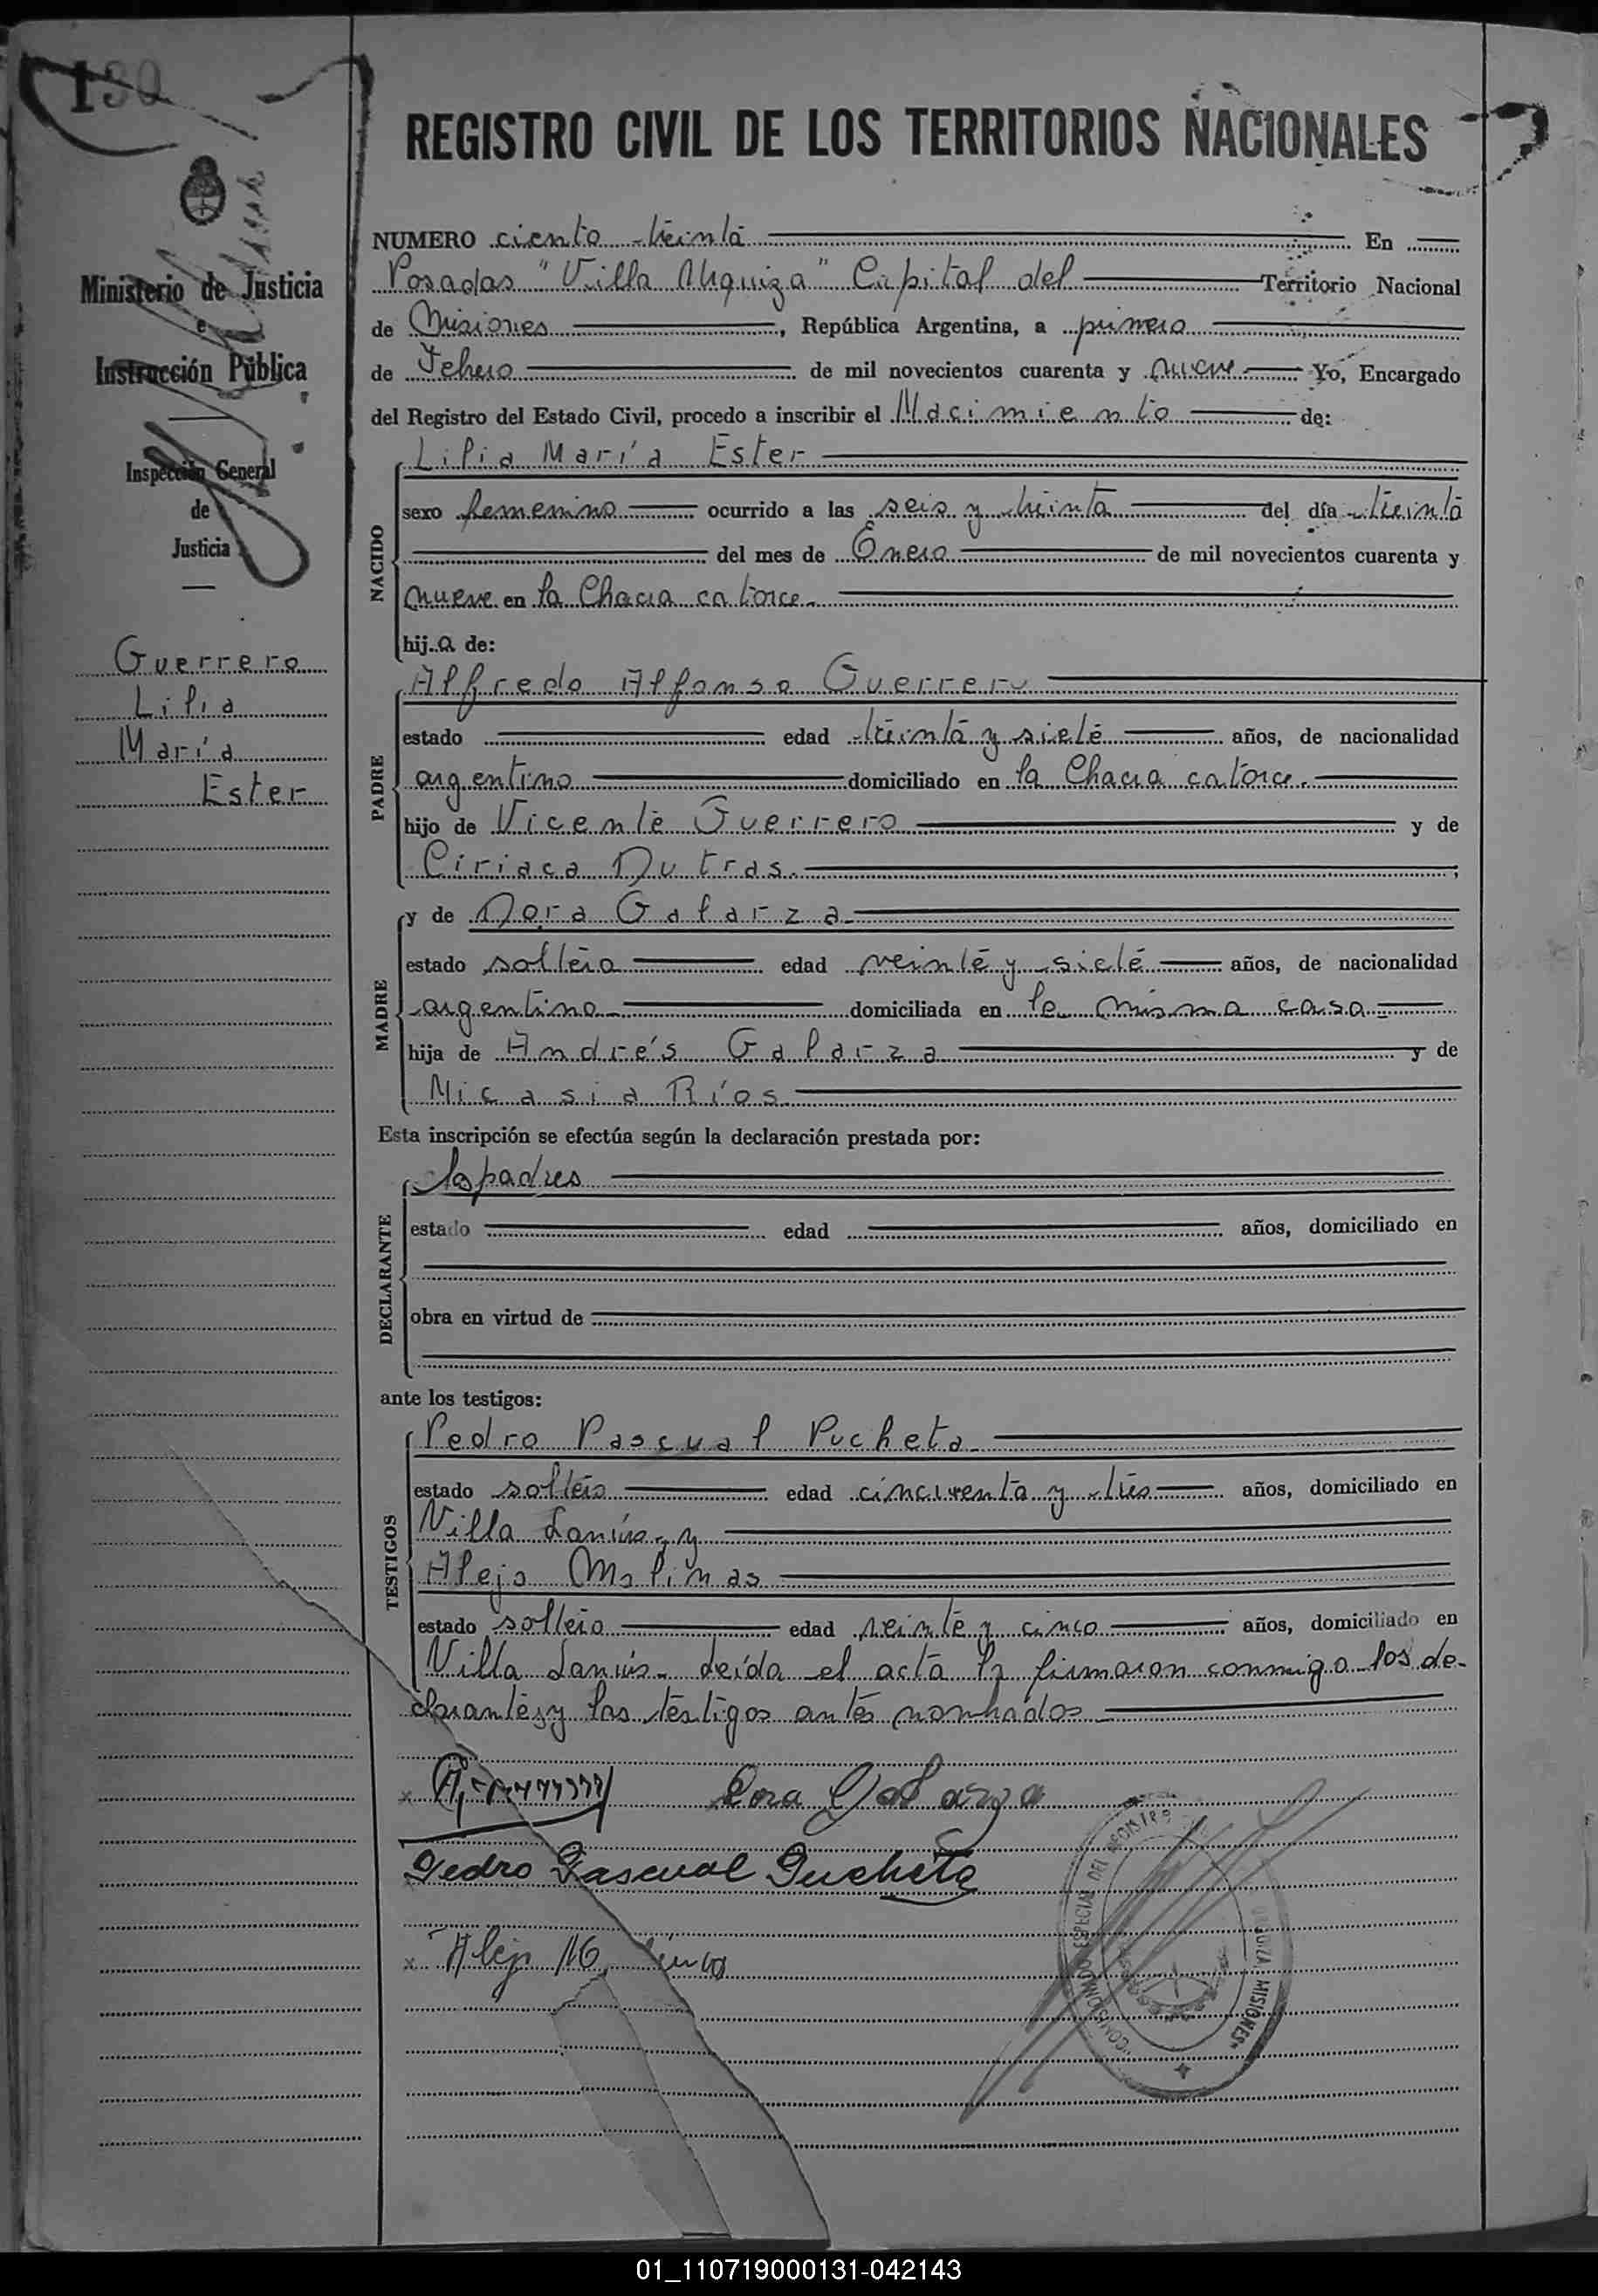 130
REGISTRO CIVIL DE LOS TERRITORIOS NACIONALES
Ministerio de Justicia
e
Instrucción Pública
Inspección General
de
Justicia
Guerrero
Lilia
María
Ester
NUMERO ciento treinta En
Posadas "Villa Urquiza" Capital del Territorio Nacional
de Misiones, República Argentina, a primero
de Febrero de mil novecientos cuarenta y nueve Yo, Encargado
del Registro del Estado Civil, procedo a inscribir el Nacimiento de:
NACIDO
Lilia María Ester
sexo femenino ocurrido a las seis y treinta del día treinta
del mes de Enero de mil novecientos cuarenta y
nueve en la Chacra catorce.
hija de:
PADRE
Alfredo Alfonso Guerrero
estado edad treinta y siete años, de nacionalidad
argentino domiciliado en la Chacra catorce.
hijo de Vicente Guerrero y de
Ciriaca Dutras.;
MADRE
y de Dora Galarza
estado soltera edad veinte y siete años, de nacionalidad
argentina domiciliada en la misma casa
hija de Andrés Galarza y de
Nicasia Ríos.
Esta inscripción se efectúa según la declaración prestada por:
DECLARANTE
los padres
estado edad años, domiciliado en
obra en virtud de
ante los testigos:
TESTIGOS
Pedro Pascual Pucheta
estado soltero edad cincuenta y tres años, domiciliado en
Villa Lanús, y
Alejo Molinas
estado soltero edad veinte y cinco años, domiciliado en
Villa Lanús. Leída el acta la firmaron conmigo los de-
clarantes y los testigos antes nombrados
x Dora Galarza
Pedro Pascual Pucheta
x Alejo
COMISIONADO ESPECIAL DEL REGISTRO
URQUIZA, MISIONES
01_110719000131-042143